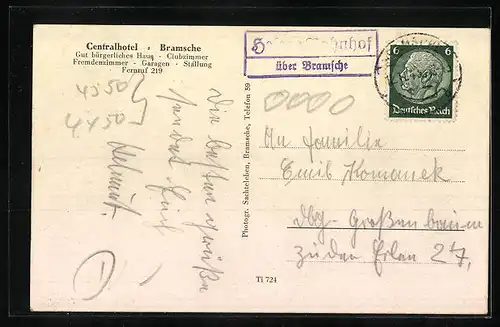 Centralhotel - Bramsche
Gut bürgerliches Haus - Clubzimmer
Fremdenzimmer - Garagen - Stallung
Fernruf 219
4550
4450
Die besten Grüße
sendet
Helmut.
Photogr. Sachteleben, Bramsche, Telefon 89
Ti 724
über Bramsche
6 6
Deutsches Reich
0000
An Familie
Emil Komanek
Dbg-Großenbaum
Zu den Erlen 27,